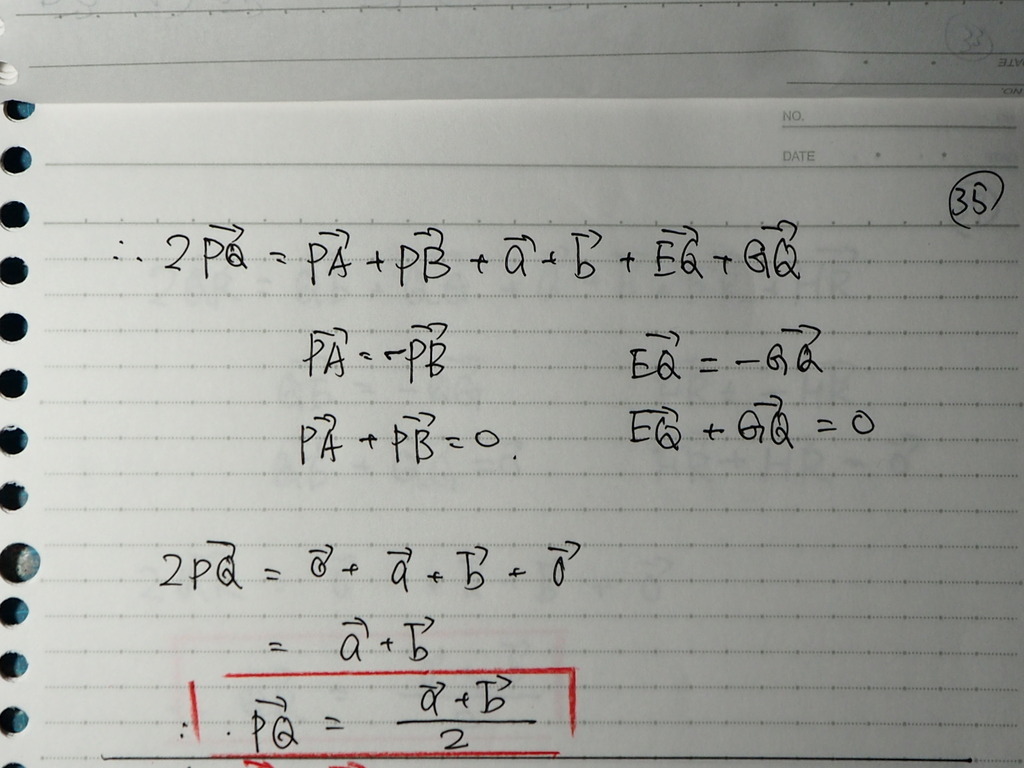 NO.
DATE
35
∴ 2PQ⃗ = PA⃗ + PB⃗ + a⃗ + b⃗ + EQ⃗ + GQ⃗
PA⃗ = -PB⃗ EQ⃗ = -GQ⃗
PA⃗ + PB⃗ = 0. EQ⃗ + GQ⃗ = 0
2PQ⃗ = 0⃗ + a⃗ + b⃗ + 0⃗
= a⃗ + b⃗
∴ PQ⃗ = (a⃗ + b⃗)/2